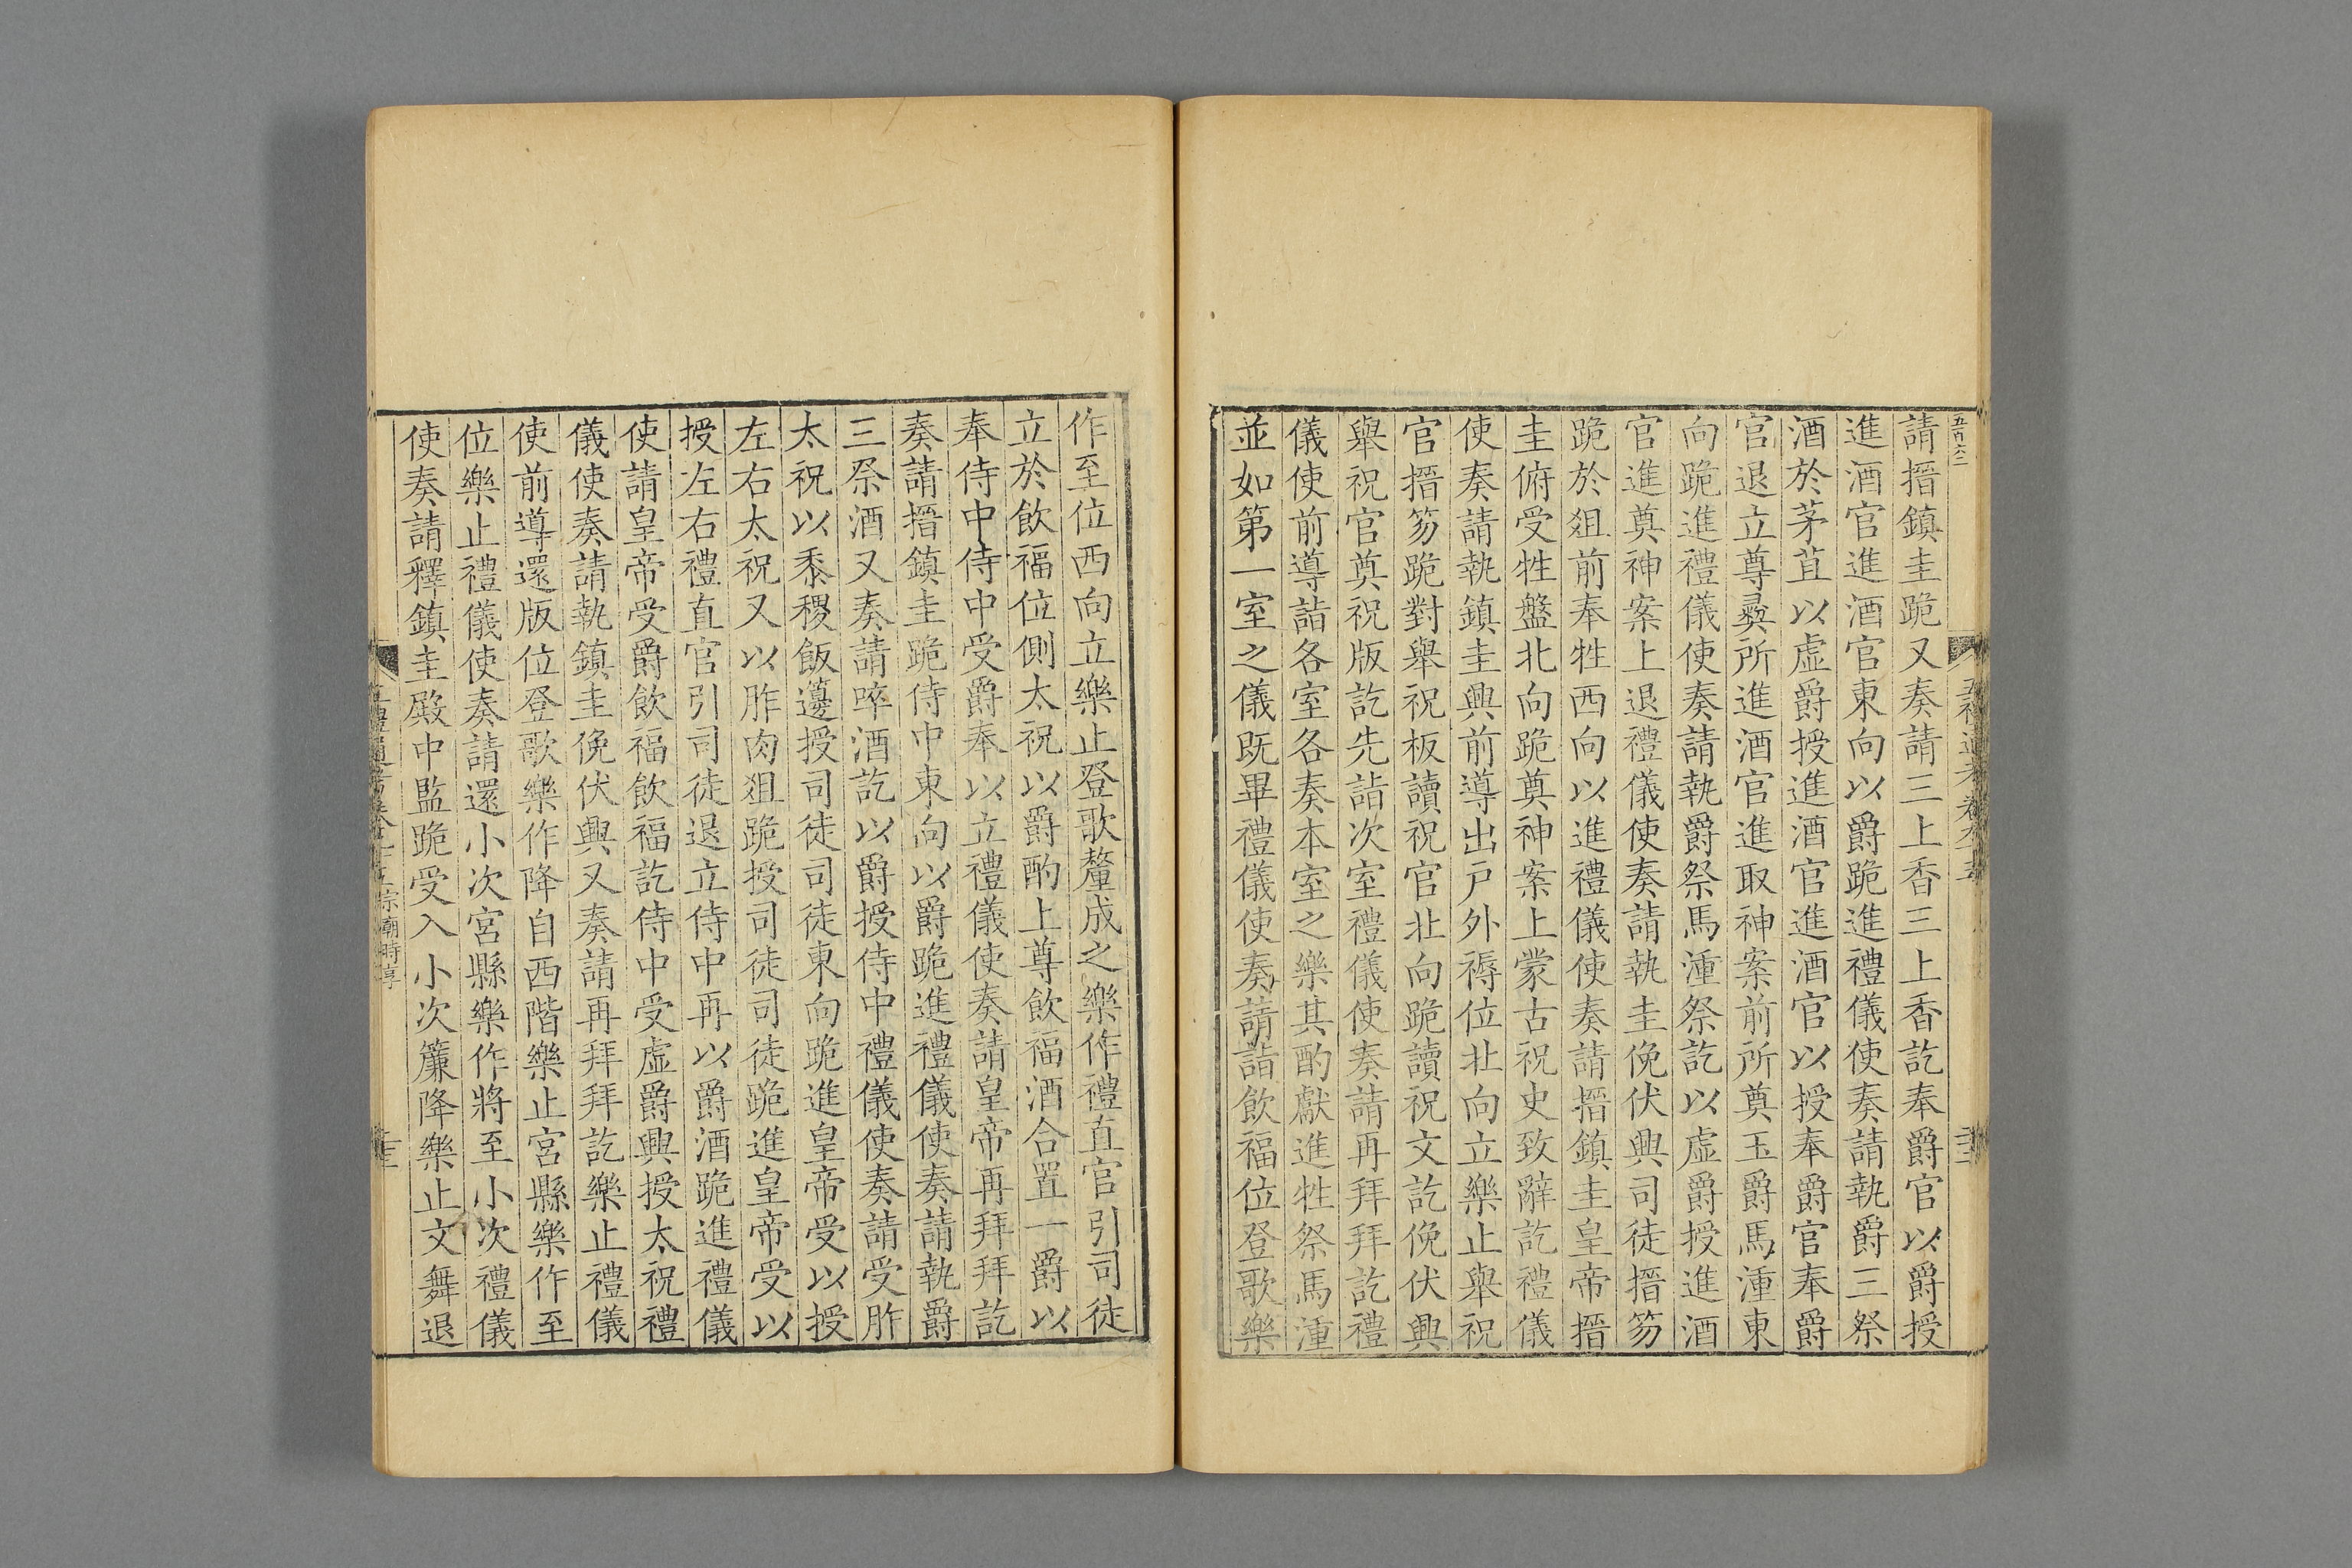 請搢鎮圭跪又奏請三上香三上香訖奉爵官以爵授
進酒官進酒官東向以爵跪進禮儀使奏請執爵三祭
酒於茅苴以虛爵授進酒官進酒官以授奉爵官奉爵
官退立尊彝所進酒官進取神案前所奠玉爵馬湩東
向跪進禮儀使奏請執爵祭馬湩祭訖以虛爵授進酒
官進奠神案上退禮儀使奏請執圭俛伏興司徒搢笏
跪於俎前奉牲西向以進禮儀使奏請搢鎮圭皇帝搢
圭俯受牲盤北向跪奠神案上蒙古祝史致辭訖禮儀
使奏請執鎮圭興前導出戶外褥位北向立樂止舉祝
官搢笏跪對舉祝板讀祝官北向跪讀祝文訖俛伏興
舉祝官奠祝版訖先詣次室禮儀使奏請再拜拜訖禮
儀使前導詣各室各奏本室之樂其酌獻進牲祭馬湩
並如第一室之儀既畢禮儀使奏請詣飲福位登歌樂
作至位西向立樂止登歌釐成之樂作禮直官引司徒
立於飲福位側太祝以爵酌上尊飲福酒合置一爵以
奉侍中侍中受爵奉以立禮儀使奏請皇帝再拜拜訖
奏請搢鎮圭跪侍中東向以爵跪進禮儀使奏請執爵
三祭酒又奏請啐酒訖以爵授侍中禮儀使奏請受胙
太祝以黍稷飯籩授司徒司徒東向跪進皇帝受以授
左右太祝又以胙肉俎跪授司徒司徒跪進皇帝受以
授左右禮直官引司徒退立侍中再以爵酒跪進禮儀
使請皇帝受爵飲福飲福訖侍中受虛爵興授太祝禮
儀使奏請執鎮圭俛伏興又奏請再拜拜訖樂止禮儀
使前導還版位登歌樂作降自西階樂止宮縣樂作至
位樂止禮儀使奏請還小次宮縣樂作將至小次禮儀
使奏請釋鎮圭殿中監跪受入小次簾降樂止文舞退
宗廟時享